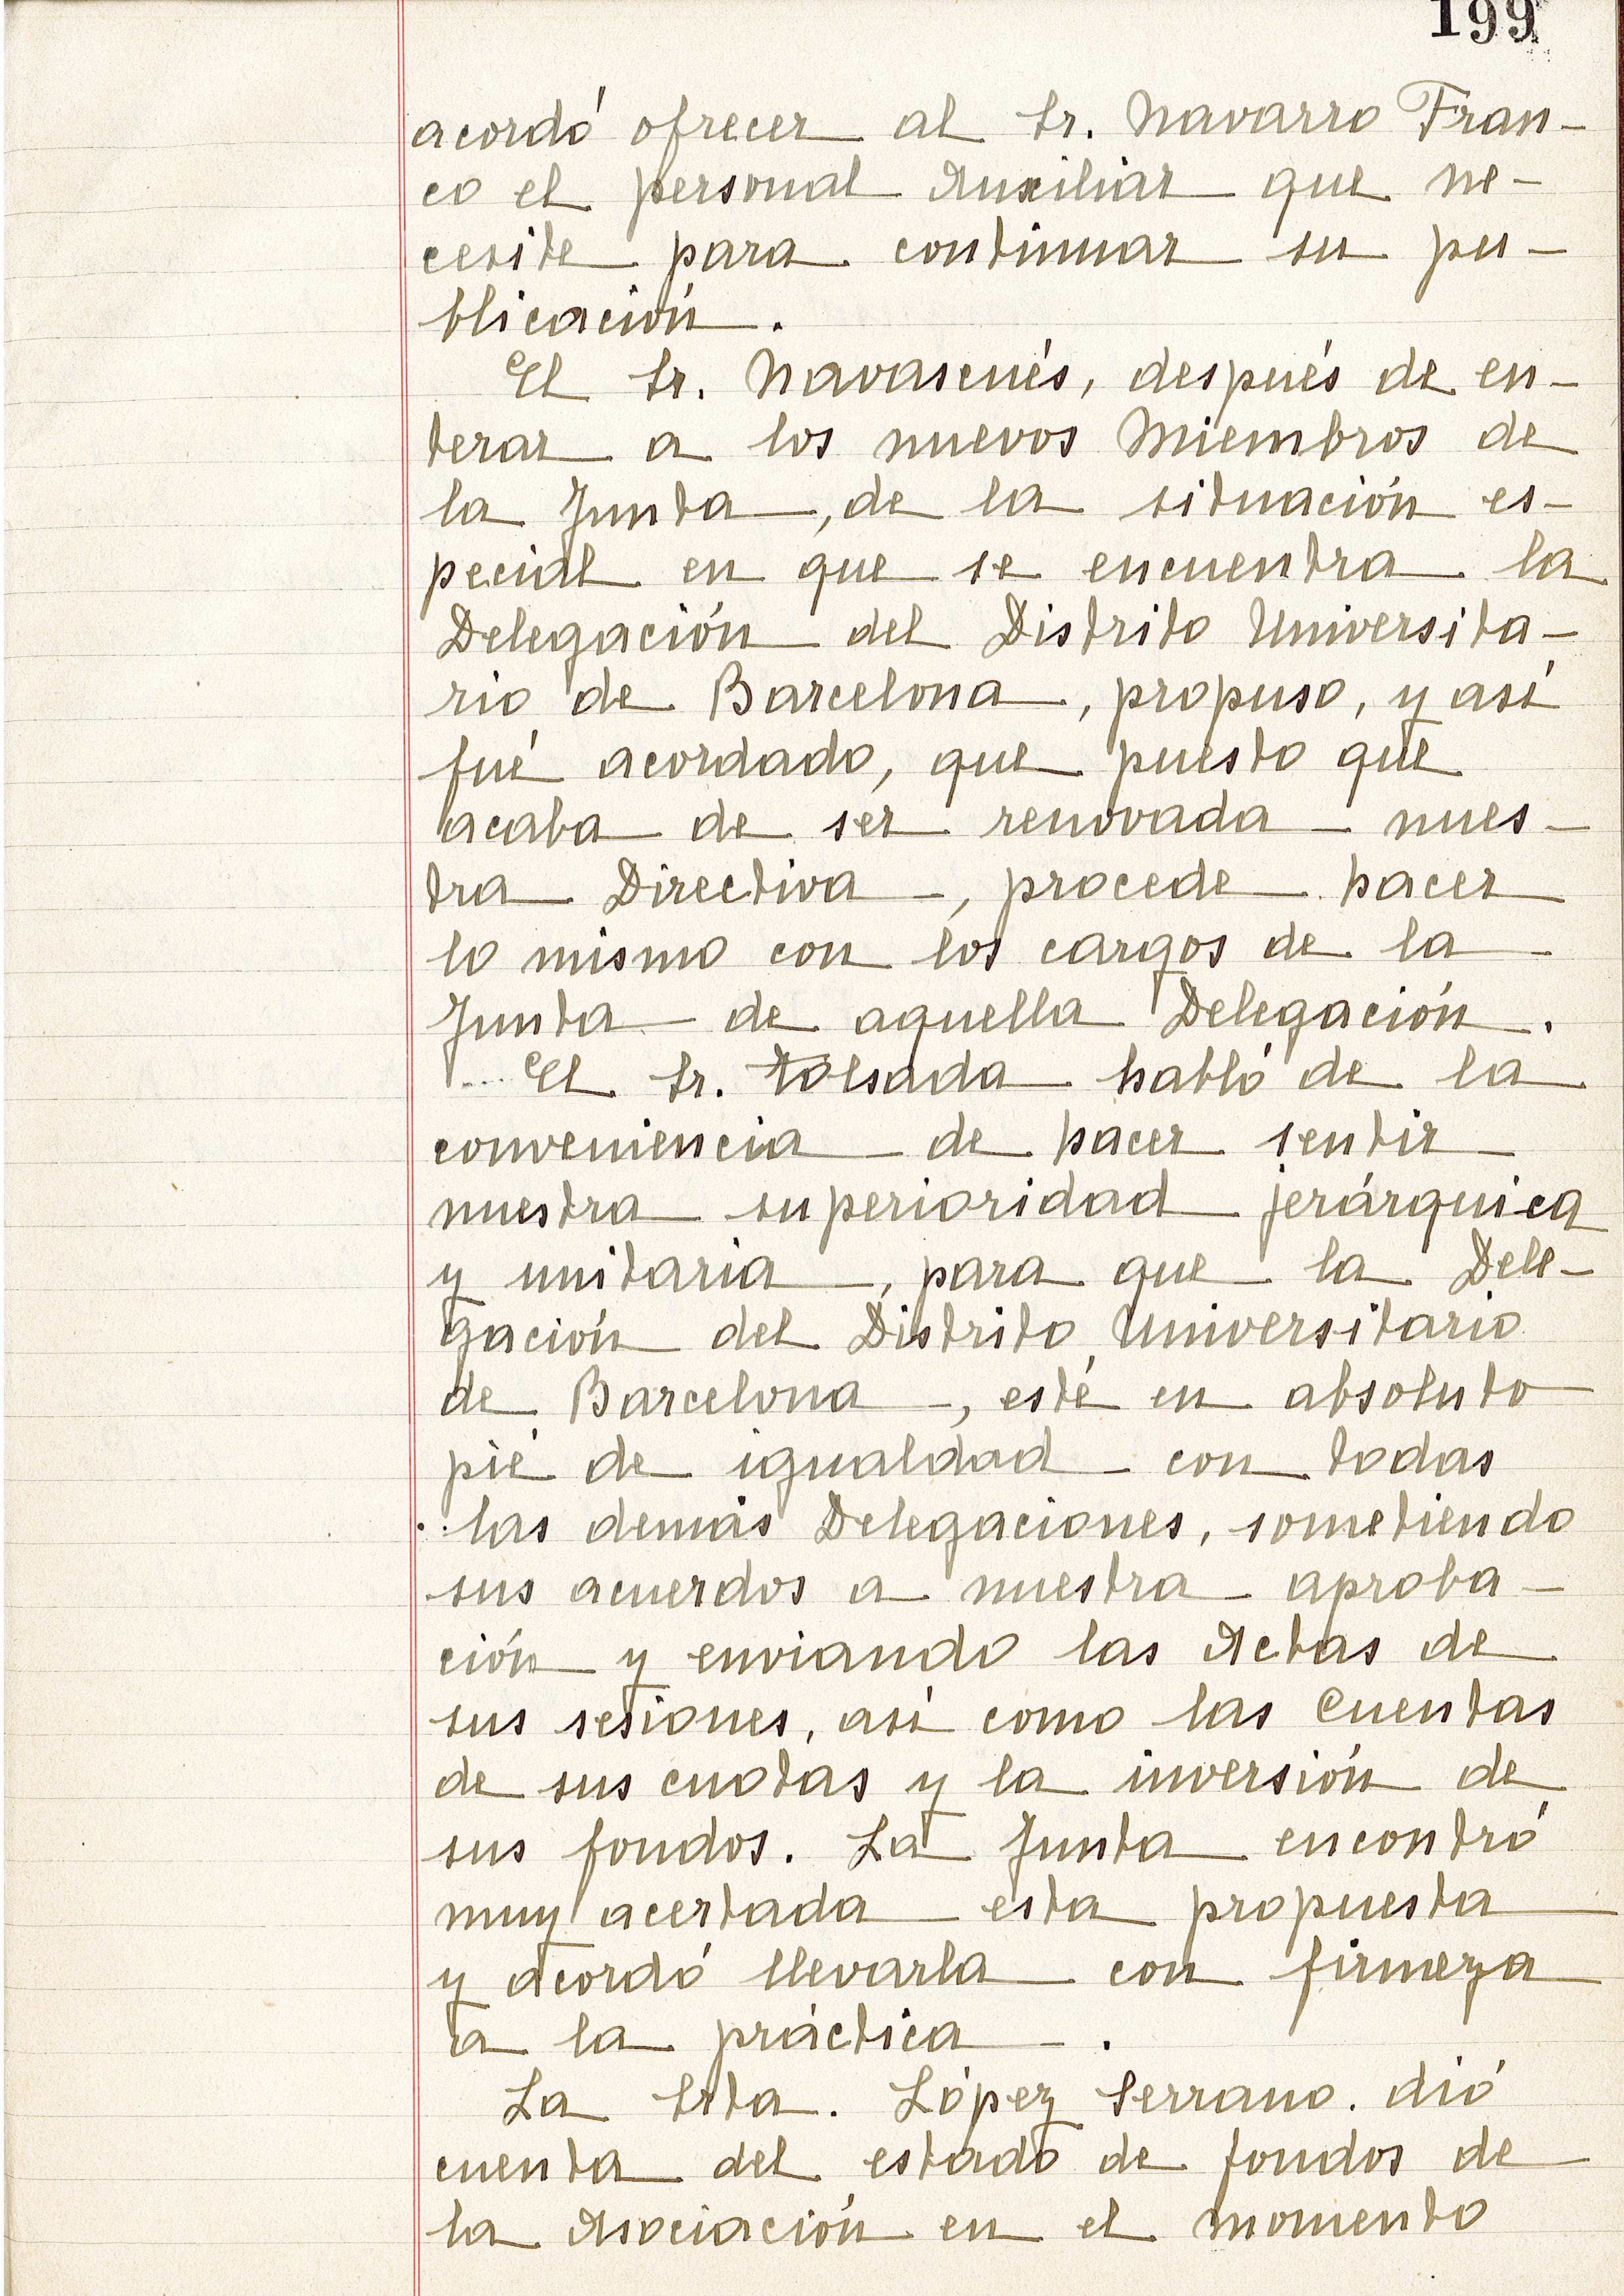 199
acordó ofrecer al Sr. Navarro Fran-
co el personal Auxiliar que ne-
cesite para continuar su pu-
blicación.
El Sr. Navascués, después de en-
terar a los nuevos Miembros de
la Junta, de la situación es-
pecial en que se encuentra la
Delegación del Distrito Universita-
rio de Barcelona, propuso, y así
fué acordado, que puesto que
acaba de ser renovada nues-
tra Directiva, procede hacer
lo mismo con los cargos de la
Junta de aquella Delegación.
El Sr. Tolsada habló de la
conveniencia de hacer sentir
nuestra superioridad jerárquica
y unitaria, para que la Dele-
gación del Distrito Universitario
de Barcelona, esté en absoluto
pié de igualdad con todas
las demás Delegaciones, sometiendo
sus acuerdos a nuestra aproba-
ción y enviando las Actas de
sus sesiones, así como las Cuentas
de sus cuotas y la inversión de
sus fondos. La Junta encontró
muy acertada esta propuesta
y acordó llevarla con firmeza
a la práctica.
La Srta. López Serrano. dió
cuenta del estado de fondos de
la Asociación en el momento